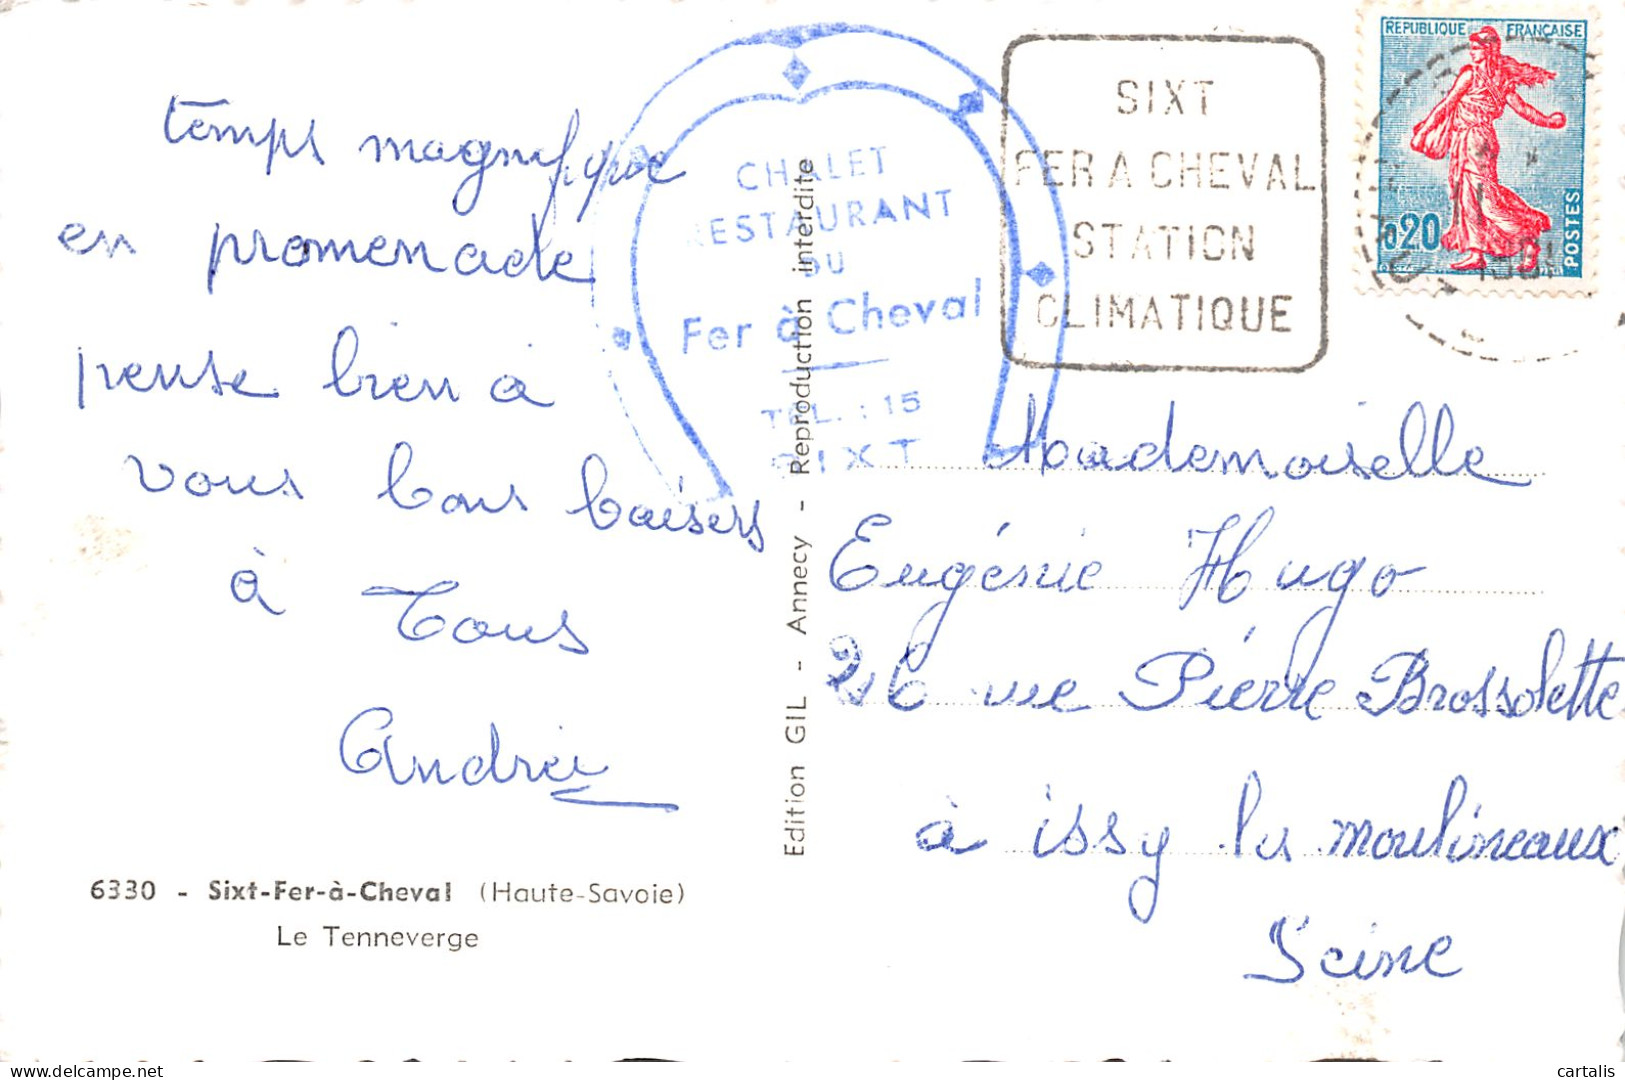 temps magnifique
en promenade
pense bien à
vous bons baisers
à Tous
Andrée
6330 - Sixt-Fer-à-Cheval (Haute-Savoie)
Le Tenneverge
CHALET
RESTAURANT
DU
Fer à Cheval
TÉL. : 15
SIXT
Edition GIL - Annecy - Reproduction interdite
SIXT
FER A CHEVAL
STATION
CLIMATIQUE
REPUBLIQUE FRANÇAISE
0,20
POSTES
1961
Mademoiselle
Eugénie Hugo
26 rue Pierre Brossolette
à issy les moulineaux
Seine
cartalis